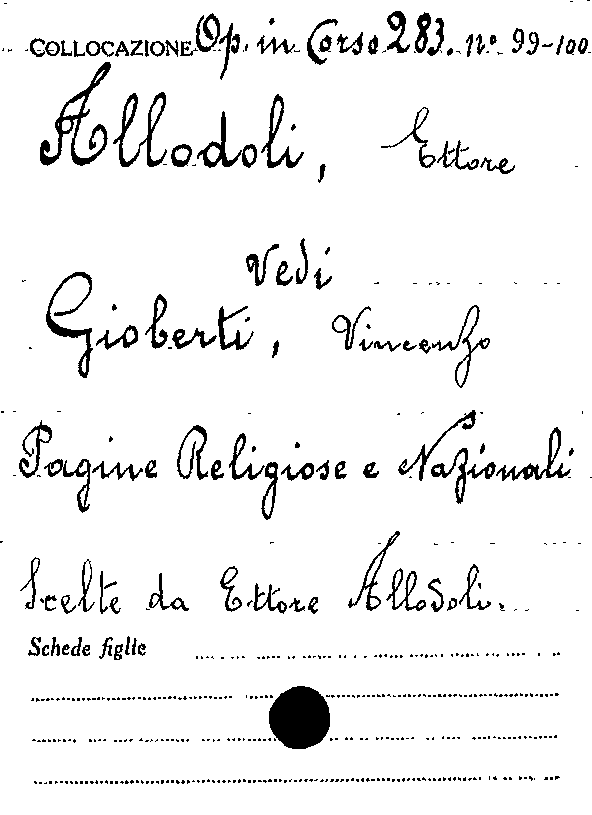 COLLOCAZIONE Op. in Corso 283. n.º 99-100
Allodoli, Ettore
Vedi
Gioberti, Vincenzo
Pagine Religiose e Nazionali
Scelte da Ettore Allodoli.
Schede figlie